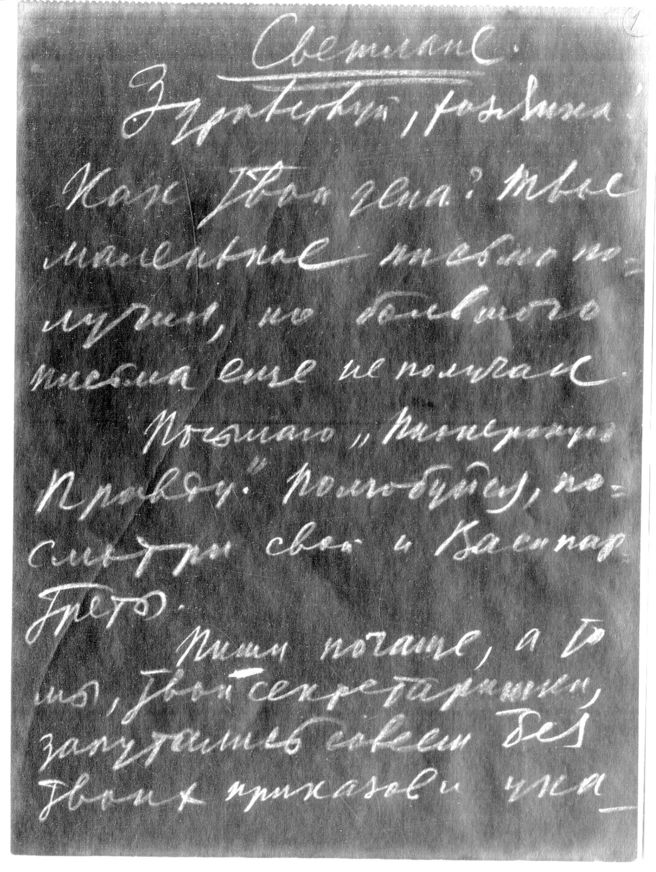 1
Светлане.
Здравствуй, хозяйка!
Как твои дела? Твое
маленькое письмо по=
лучил, но большого
письма еще не получал.
Посылаю „Пионерскую
Правду." Полюбуйся, по=
смотри свой и Васи пор
треты.
Пиши почаще, а то
мы, твои секретаришки,
запутались совсем без
твоих приказов и ука_